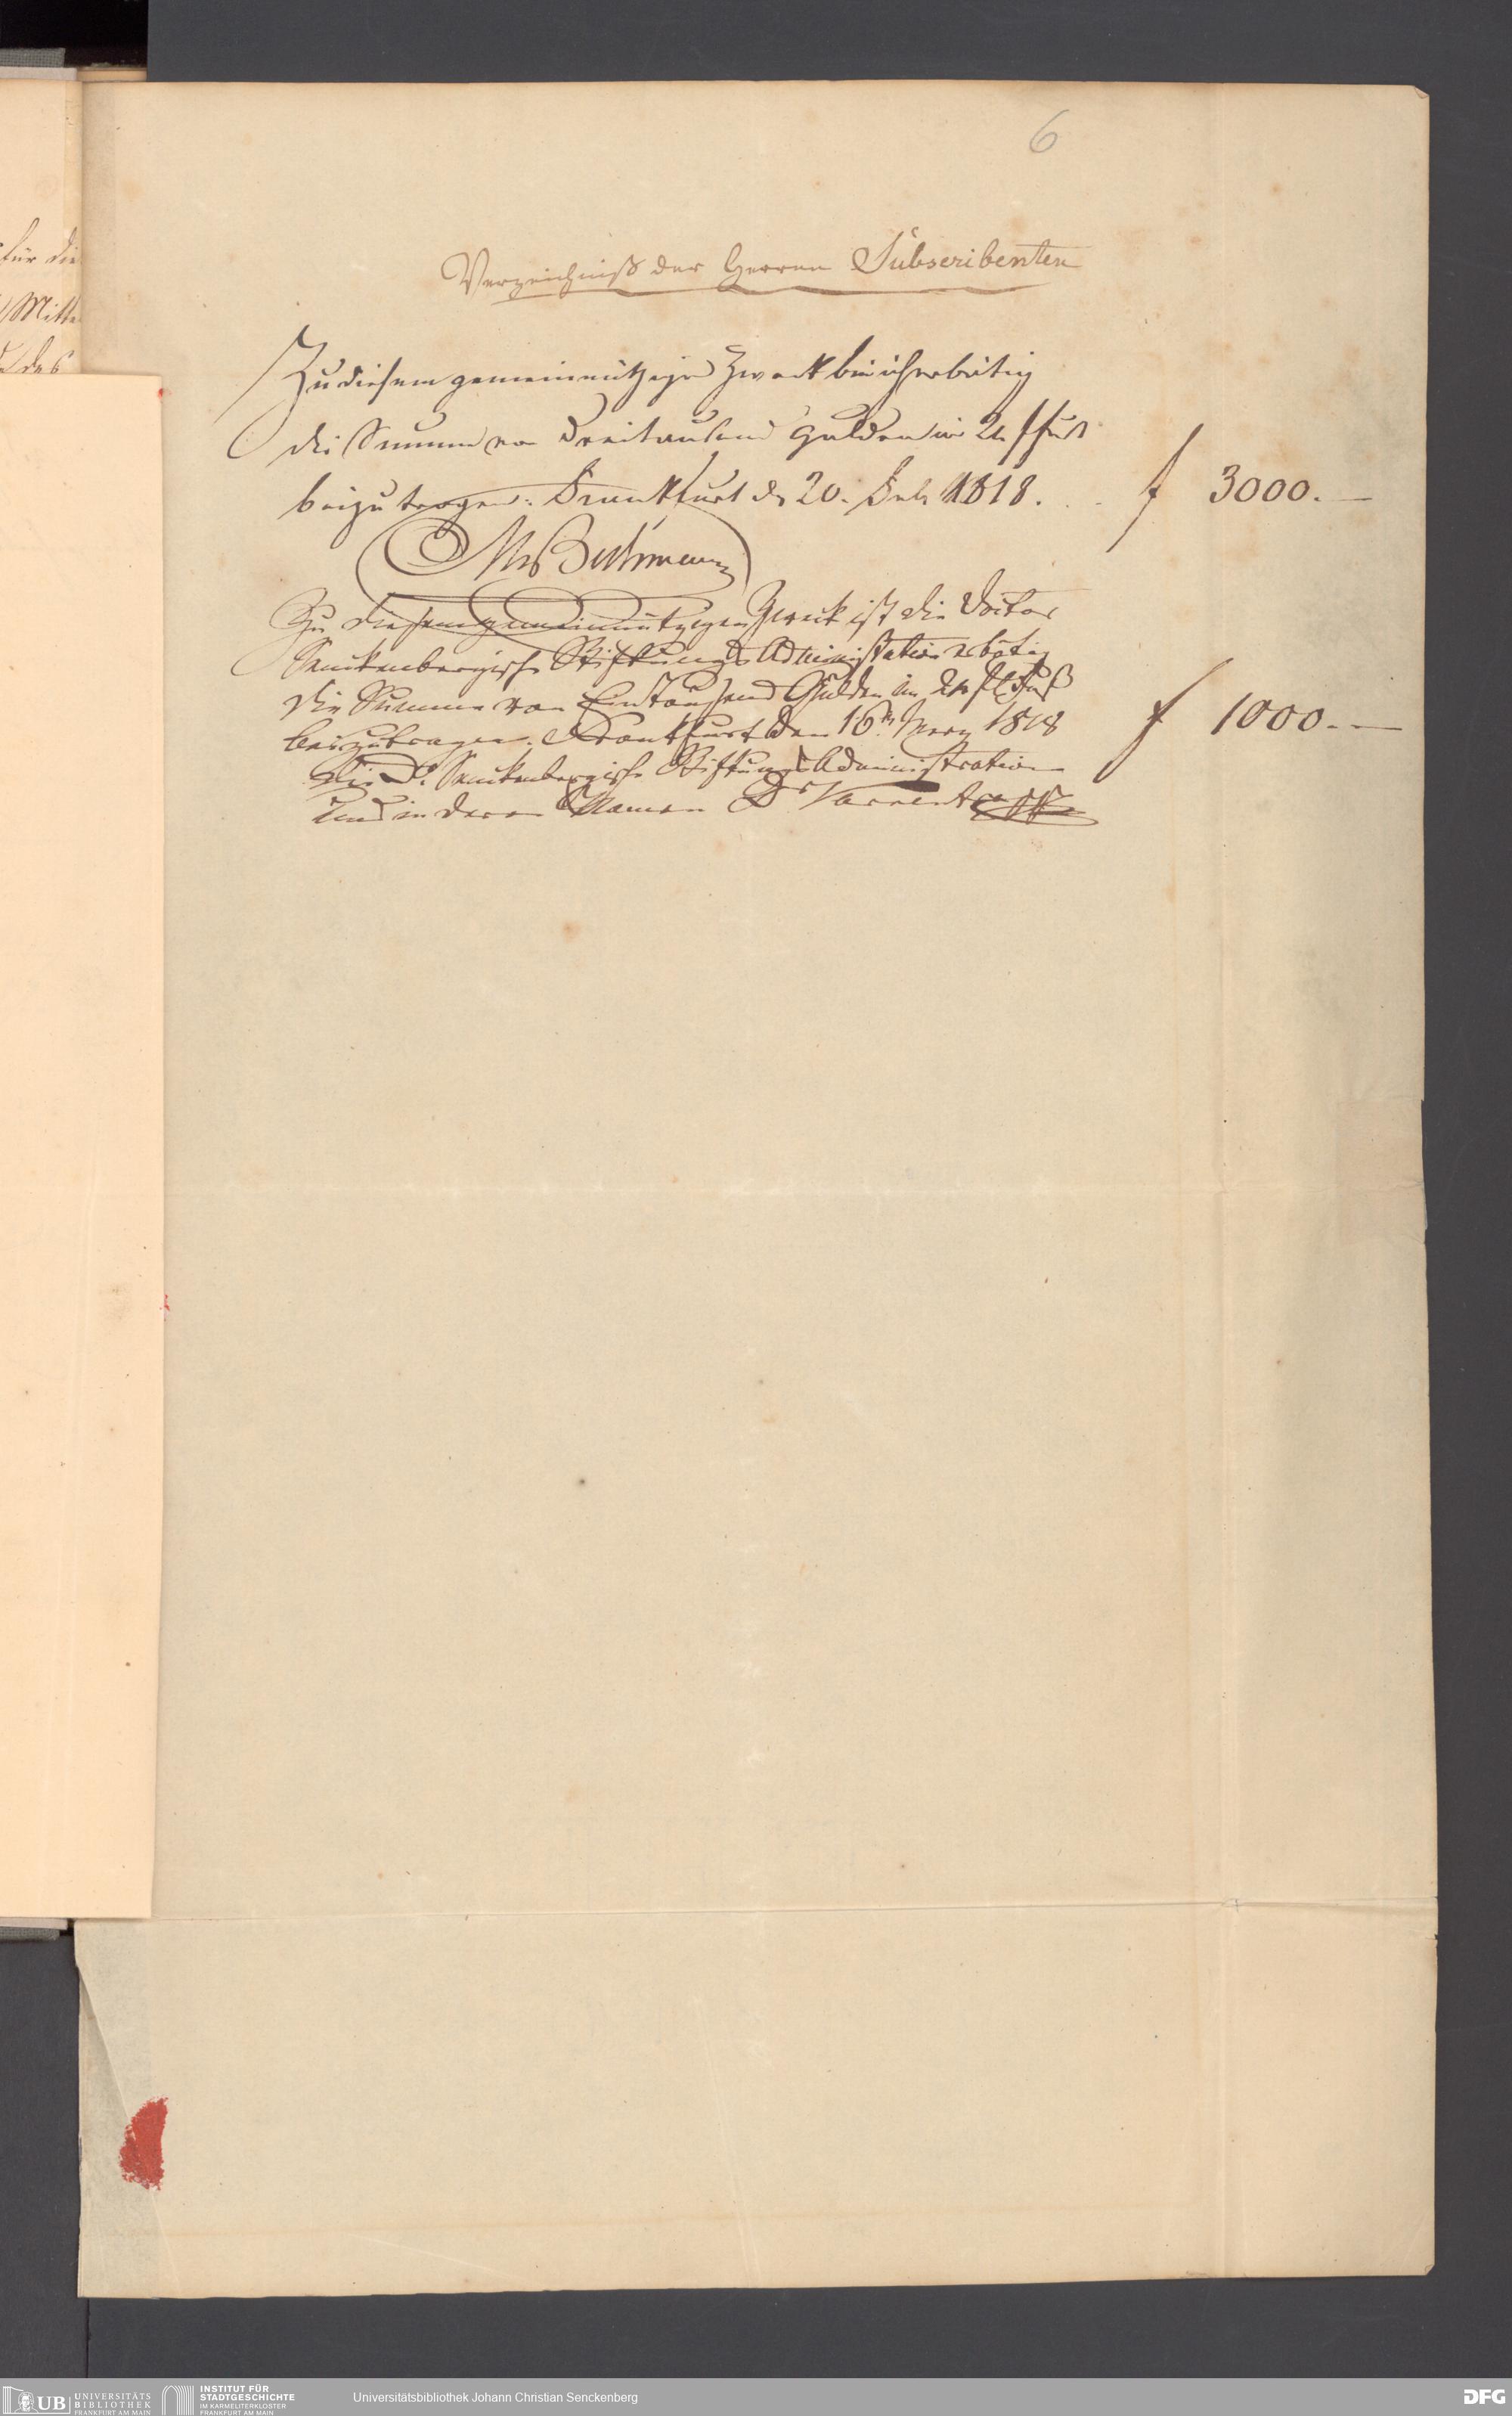 6
für die
Mitte
des
Verzeichniß der Herren Subscribenten
Zu diesem gemeinnützigen Zweck bin ich erbötig
die Summe von Dreitausend Gulden im 24 f Fus
beizutragen. Frankfurt d 20. Feb 1818. f 3000.—
Bethmann
Zu diesem gemeinnützigen Zweck ist die Doctor
Senckenbergische Stiftungs Administation erbötig
die Summe von Eintausend Gulden im 24 fl Fuß
beizutragen. Frankfurt den 16n Merz 1818 f 1000.—
Die Dr Senckenbergische Stiftungs Administration
und in deren Namen Dr Varrentrapp
UB UNIVERSITÄTS
BIBLIOTHEK
FRANKFURT AM MAIN
INSTITUT FÜR
STADTGESCHICHTE
IM KARMELITERKLOSTER
FRANKFURT AM MAIN
Universitätsbibliothek Johann Christian Senckenberg
DFG